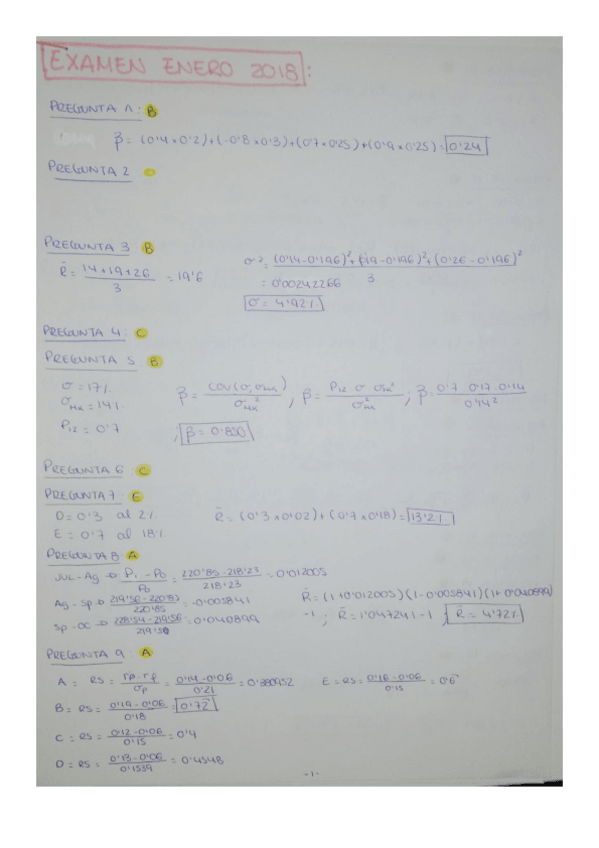 EXAMEN ENERO 2018:
PREGUNTA 1: B
β = (0'4 x 0'2) + (-0'8 x 0'3) + (0'7 x 0'25) + (0'9 x 0'25) = 0'24
PREGUNTA 2
PREGUNTA 3 B
R̄ = (14 + 19 + 26) / 3 = 19'6
σ² = ((0'14 - 0'196)² + (0'19 - 0'196)² + (0'26 - 0'196)²) / 3
= 0'00242266
σ = 4'92%
PREGUNTA 4: C
PREGUNTA 5: B
σ = 17%
σMK = 14%
P12 = 0'7
β = Cov(σ, σMK) / σMK² ; β = P12 σ σMK / σMK² ; β = 0'7 · 0'17 · 0'14 / 0'14²
; β = 0'850
PREGUNTA 6 C
PREGUNTA 7: E
D = 0'3 al 2%
E = 0'7 al 18%
R̄ = (0'3 x 0'02) + (0'7 x 0'18) = 13'2%
PREGUNTA 8 A
JUL - Ag → (P1 - P0) / P0 = (220'85 - 218'23) / 218'23 = 0'012005
Ag - Sp → (219'56 - 220'85) / 220'85 = -0'005841
Sp - OC → (228'54 - 219'56) / 219'56 = 0'040899
R̄ = (1 + 0'012005)(1 - 0'005841)(1 + 0'040899)
-1 ; R̄ = 1'047241 - 1 ; R̄ = 4'72%
PREGUNTA 9: A
A = RS = (rp - rf) / σp = (0'14 - 0'06) / 0'21 = 0'380952
E = RS = (0'16 - 0'06) / 0'15 = 0'6
B = RS = (0'19 - 0'06) / 0'18 = 0'72
C = RS = (0'12 - 0'06) / 0'15 = 0'4
D = RS = (0'13 - 0'06) / 0'1539 = 0'4548
-1-